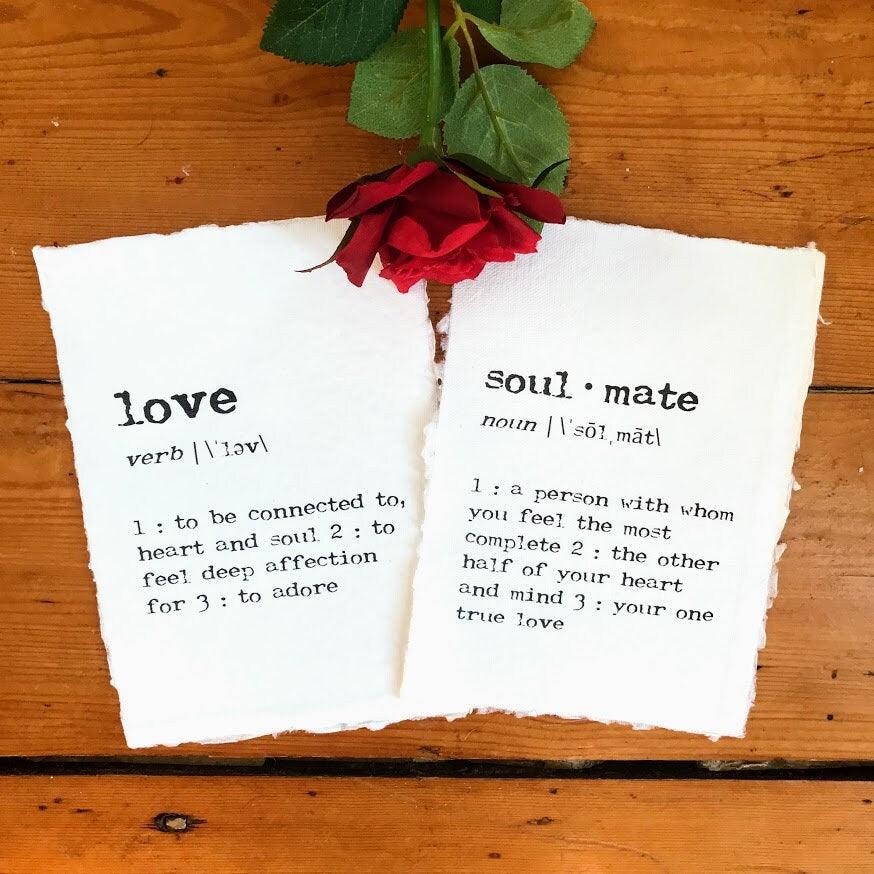 love
verb |\ˈləv\
1 : to be connected to,
heart and soul 2 : to
feel deep affection
for 3 : to adore
soul · mate
noun |\ˈsōl,māt\
1 : a person with whom
you feel the most
complete 2 : the other
half of your heart
and mind 3 : your one
true love